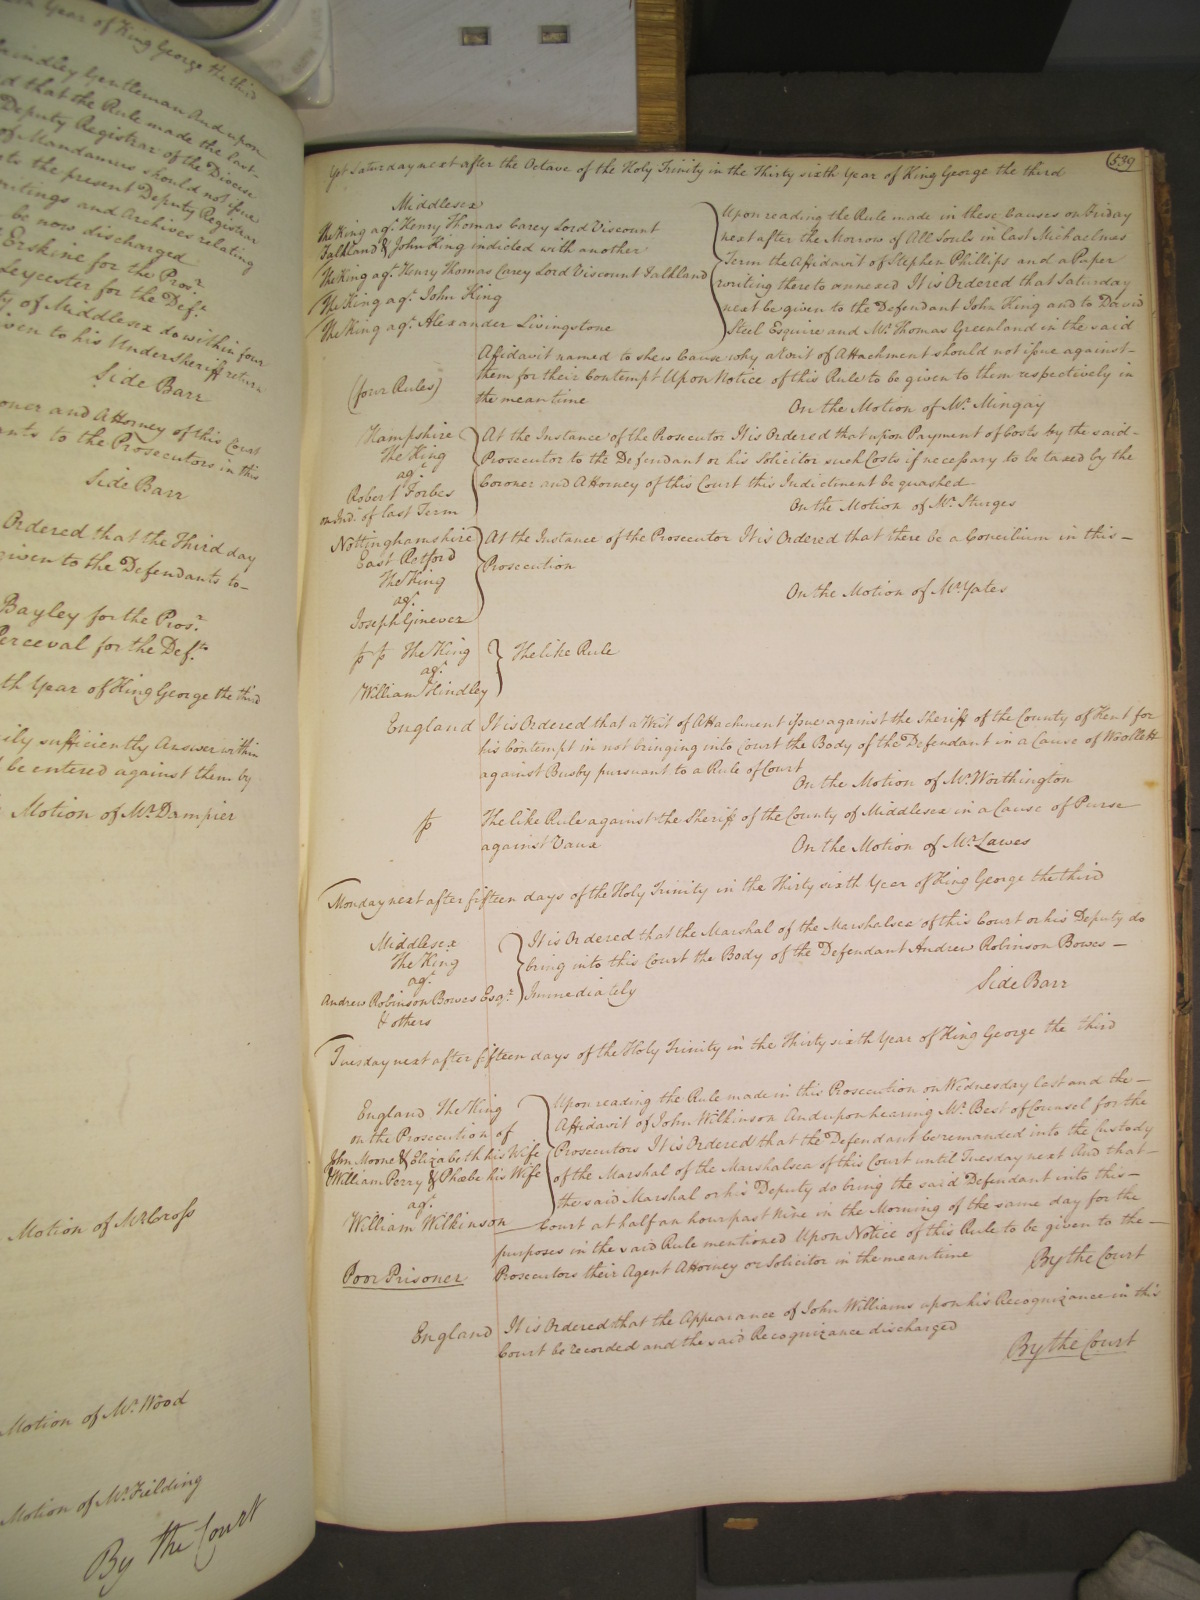 th Year of King George the third
Gentleman And upon
d that the Rule made the last
Deputy Registrar of the Diocese
of Mandamus should not issue
to the present Deputy Registrar
writings and Archives relating
be now discharged
Erskine for the Pros.r
Leycester for the Def.t
ty of Middlesex do within four
iven to his UnderSheriff return
Side Barr
oner and Attorney of this Court
ants to the Prosecutors in this
Side Barr
Ordered that the Third day
given to the Defendants to
Bayley for the Pros.r
Perceval for the Def.ts
th Year of King George the third
ily sufficiently Answer within
be entered against them by
Motion of Mr. Dampier
Motion of Mr. Cross
Motion of Mr. Wood
Motion of Mr. Fielding
By the Court
539
Yet Saturday next after the Octave of the Holy Trinity in the Thirty sixth Year of King George the third
Middlesex
The King ag.t Henry Thomas Carey Lord Viscount
Falkland & John King indicted with another
The King ag.t Henry Thomas Carey Lord Viscount Falkland
The King ag.t John King
The King ag.t Alexander Livingstone
(four Rules)
Upon reading the Rule made in these Causes on Friday
next after the Morrow of All Souls in last Michaelmas
Term the Affidavit of Stephen Phillips and a Paper
writing thereto annexed It is Ordered that Saturday
next be given to the Defendant John King and to David
Steel Esquire and Mr. Thomas Greenland in the said
Affidavit named to shew Cause why a Writ of Attachment should not issue against
them for their Contempt Upon Notice of this Rule to be given to them respectively in
the mean time
On the Motion of Mr. Mingay
Hampshire
The King
ag.t
Robert Forbes
on Ind.t of last Term
At the Instance of the Prosecutor It is Ordered that upon Payment of Costs by the said
Prosecutor to the Defendant or his Solicitor such Costs if necessary to be taxed by the
Coroner and Attorney of this Court this Indictment be quashed
On the Motion of Mr. Sturges
Nottinghamshire
East Retford
The King
ag.t
Joseph Ginever
At the Instance of the Prosecutor It is Ordered that there be a Concilium in this
Prosecution
On the Motion of Mr. Yates
The King
ag.t
William Hindley
The like Rule
England It is Ordered that a Writ of Attachment issue against the Sheriff of the County of Kent for
his Contempt in not bringing into Court the Body of the Defendant in a Cause of Woollett
against Busby pursuant to a Rule of Court
On the Motion of Mr. Worthington
The like Rule against the Sheriff of the County of Middlesex in a Cause of Purse
against Vaux
On the Motion of Mr. Lawes
Monday next after fifteen days of the Holy Trinity in the Thirty sixth Year of King George the third
Middlesex
The King
ag.t
Andrew Robinson Bowes Esq.r
& others
It is Ordered that the Marshal of the Marshalsea of this Court or his Deputy do
bring into this Court the Body of the Defendant Andrew Robinson Bowes
Immediately
Side Barr
Tuesday next after fifteen days of the Holy Trinity in the Thirty sixth Year of King George the third
England The King
on the Prosecution of
John Moone & Elizabeth his Wife
& William Perry & Phœbe his Wife
ag.t
William Wilkinson
Poor Prisoner
Upon reading the Rule made in this Prosecution on Wednesday last and the
Affidavit of John Wilkinson And upon hearing Mr. Best of Counsel for the
Prosecutors It is Ordered that the Defendant be remanded into the Custody
of the Marshal of the Marshalsea of this Court until Tuesday next And that
the said Marshal or his Deputy do bring the said Defendant into this
Court at half an hour past Nine in the Morning of the same day for the
purposes in the said Rule mentioned Upon Notice of this Rule to be given to the
Prosecutors their Agent Attorney or Solicitor in the mean time
By the Court
England It is Ordered that the Appearance of John Williams upon his Recognizance in this
Court be recorded and the said Recognizance discharged
By the Court